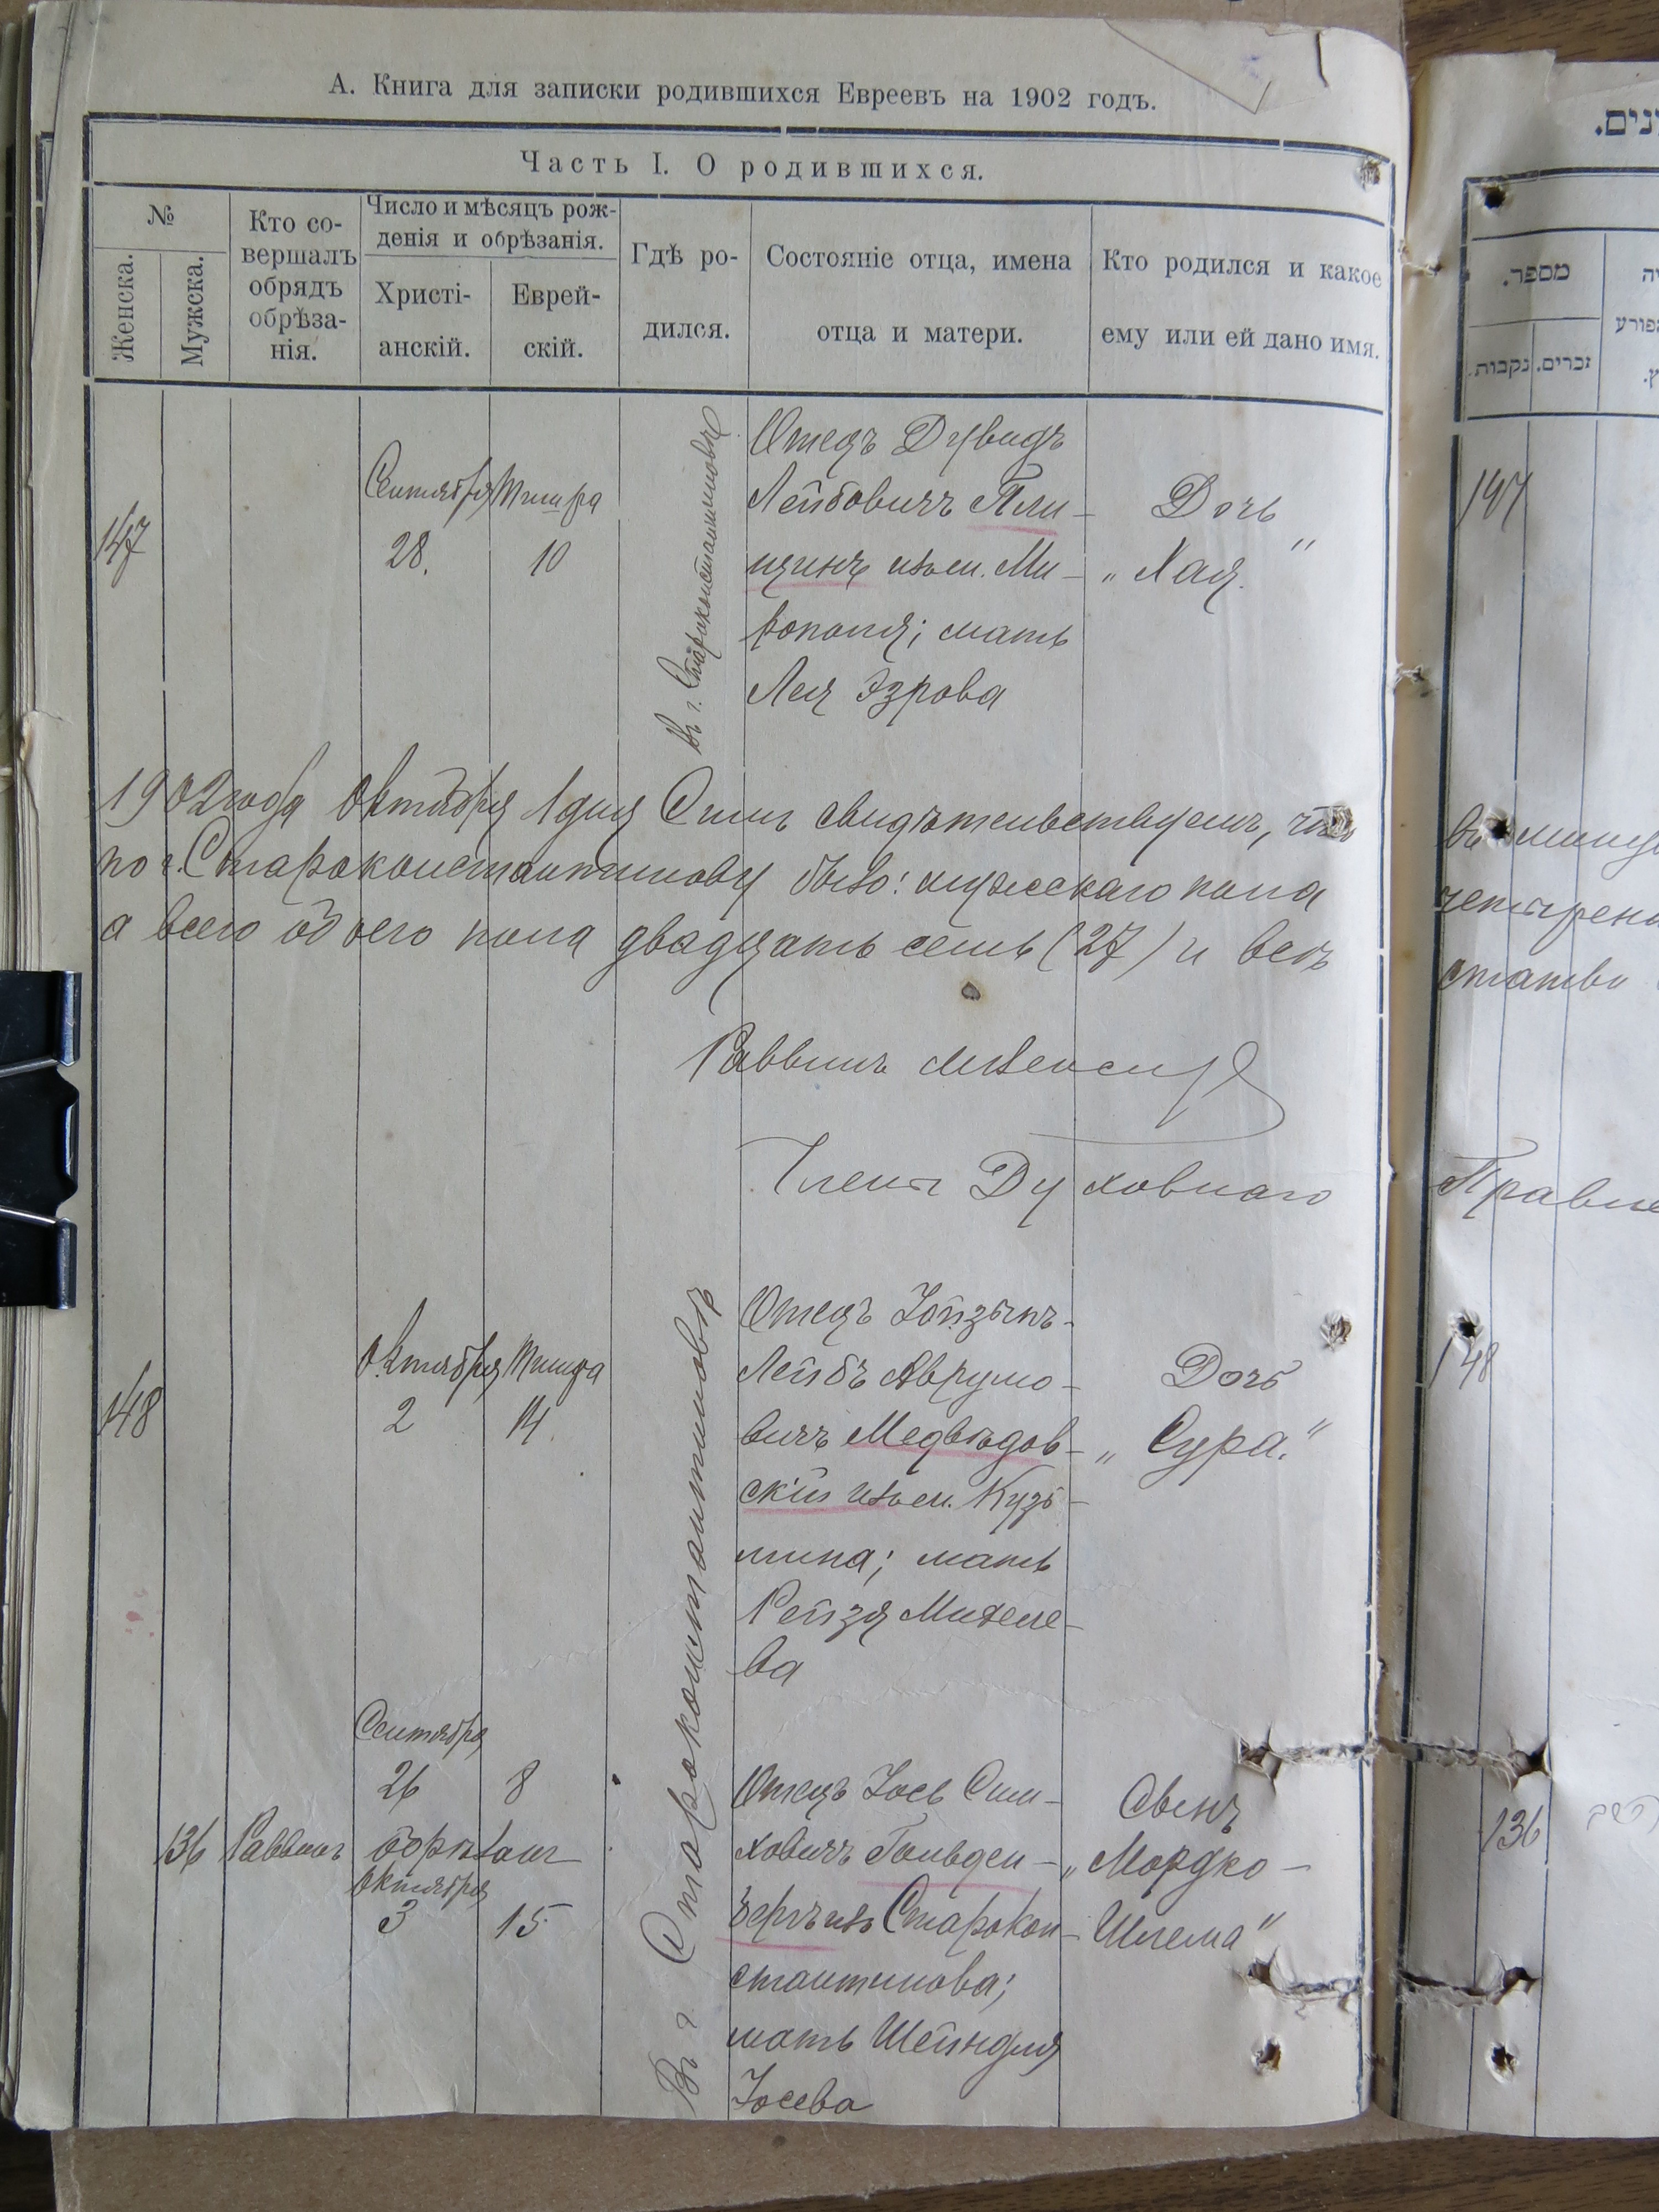 А. Книга для записки родившихся Евреевъ на 1902 годъ.
Часть I. О родившихся.
№
Женска.
Мужска.
Кто со-
вершалъ
обрядъ
обрѣза-
нія.
Число и мѣсяцъ рож-
денія и обрѣзанія.
Христі-
анскій.
Еврей-
скій.
Гдѣ ро-
дился.
Состояніе отца, имена
отца и матери.
Кто родился и какое
ему или ей дано имя.
147
Сентября
28.
Тишра
10
Въ г. Староконстантиновѣ
Отецъ Дувидъ
Лейбовичъ Пли-
щинъ изъ м. Ми-
рополя; мать
Лея Эзрова
Дочь
„Хая."
1902 года Октября 1 дня Симъ свидѣтельствуемъ, что
по г. Староконстантинову было: мужескаго пола
а всего обоего пола двадцать семь (27) и весь
Раввинъ
Членъ Духовнаго
148
Октября
2
Тишра
14
Въ г. Староконстантиновѣ
Отецъ Іойзыпъ-
Лейбъ Аврумо-
вичъ Медвѣдов-
скій изъ м. Кузь-
мина; мать
Рейзя Михеле-
ва
Дочь
„Сура."
136
Раввинъ
Сентября
26
8
обрѣзанъ
Октября
3
15
Отецъ Іось Сим-
ховичъ Гольден-
бергъ изъ Старокон-
стантинова;
мать Шейндля
Іосева
Сынъ
„Мордко-
Шлема"
מספר.
נקבות.
זכרים.
147
въ
четырен
Правле
148
136